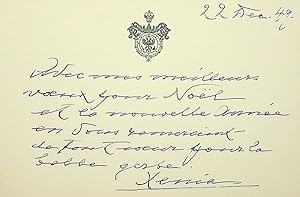 22 Dec. 49.
Avec mes meilleurs
vœux pour Noël
et la nouvelle Année
en vous remerciant
de tout cœur pour la
belle gerbe.
Xenia